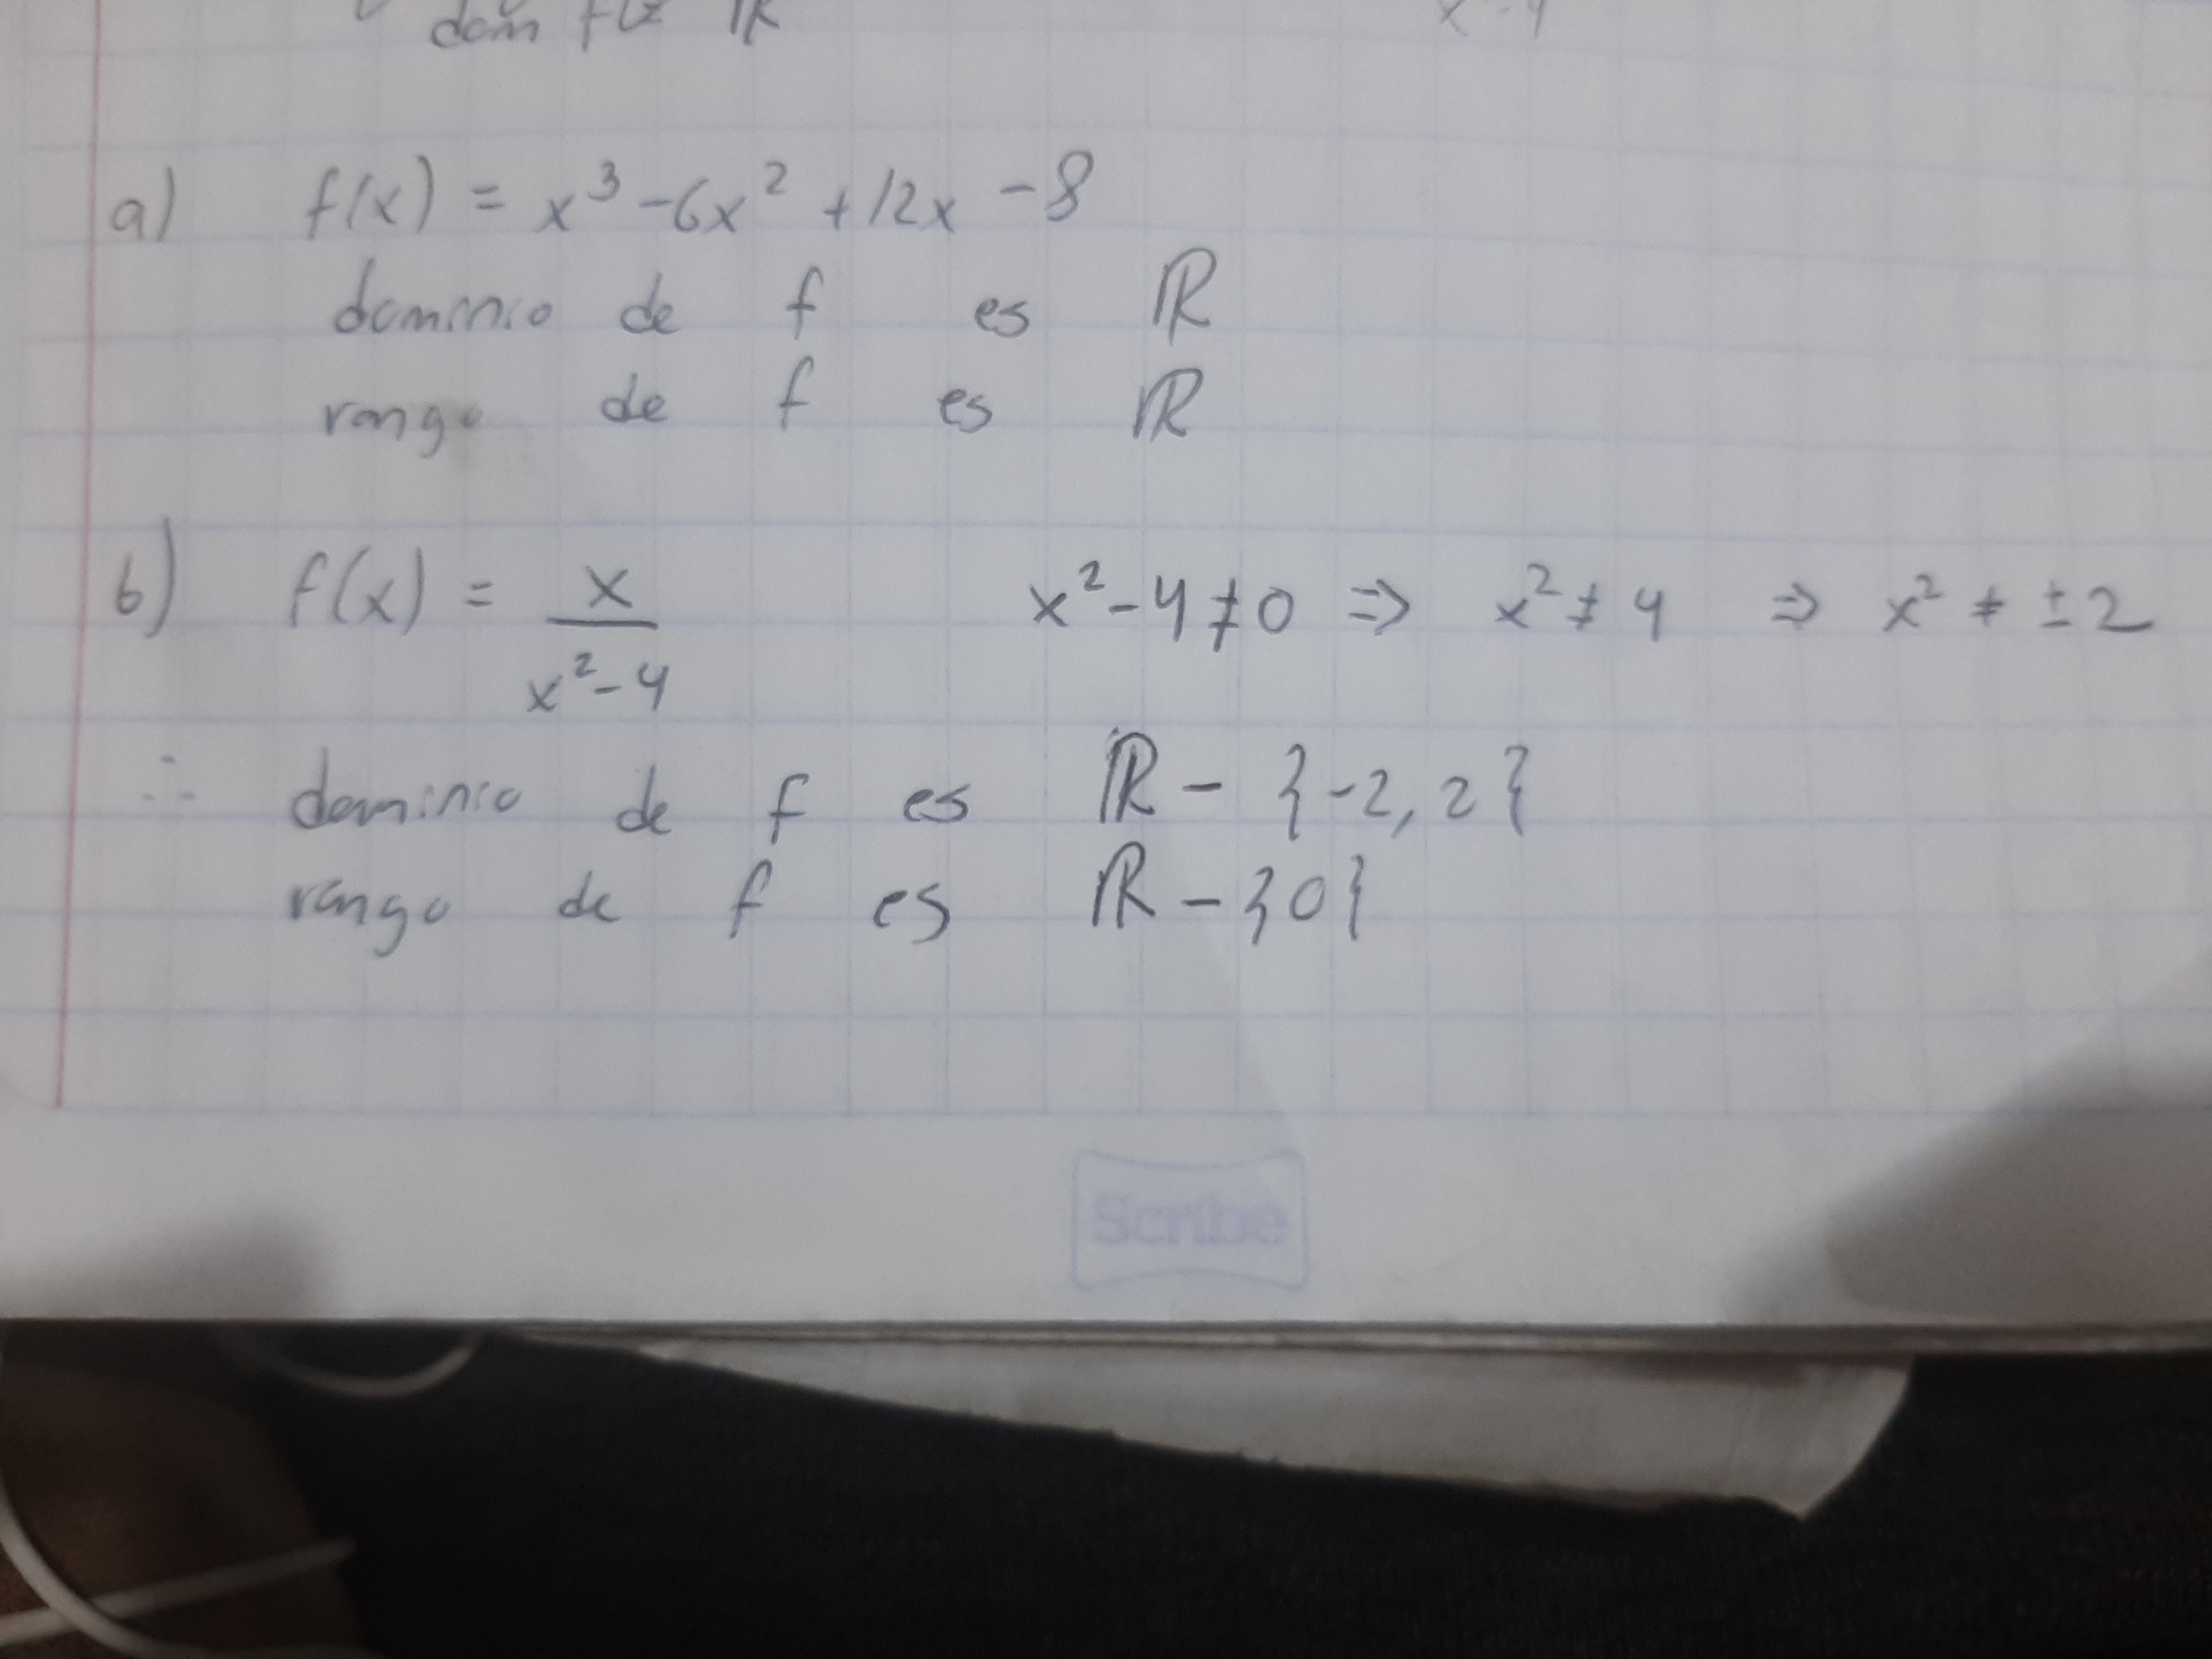 dom f(x R
x -4
a) f(x) = x³ -6x² +12x -8
dominio de f es ℝ
rango de f es ℝ
b) f(x) = x / x²-4 x²-4≠0 ⇒ x²≠4 ⇒ x² ≠ ±2
∴ dominio de f es ℝ - {-2, 2}
rango de f es ℝ - {0}
Scribe